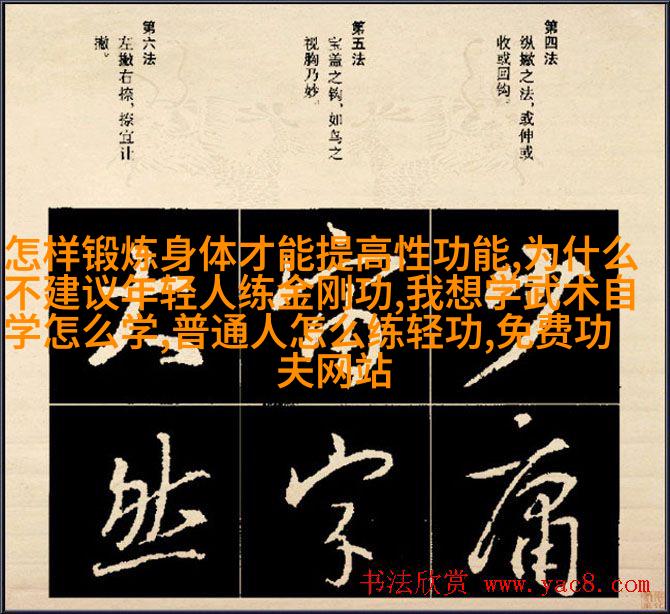 第四法
纵撇之法,或伸或
收或回钩。
第五法
宝盖之钩,如鸟之
视胸乃妙。
第六法
左撇右捺,捺宜让
撇。
怎样锻炼身体才能提高性功能,为什么
不建议年轻人练金刚功,我想学武术自
学怎么学,普通人怎么练轻功,免费功
夫网站
少
庸
字
然
书法欣赏 www.yac8.com